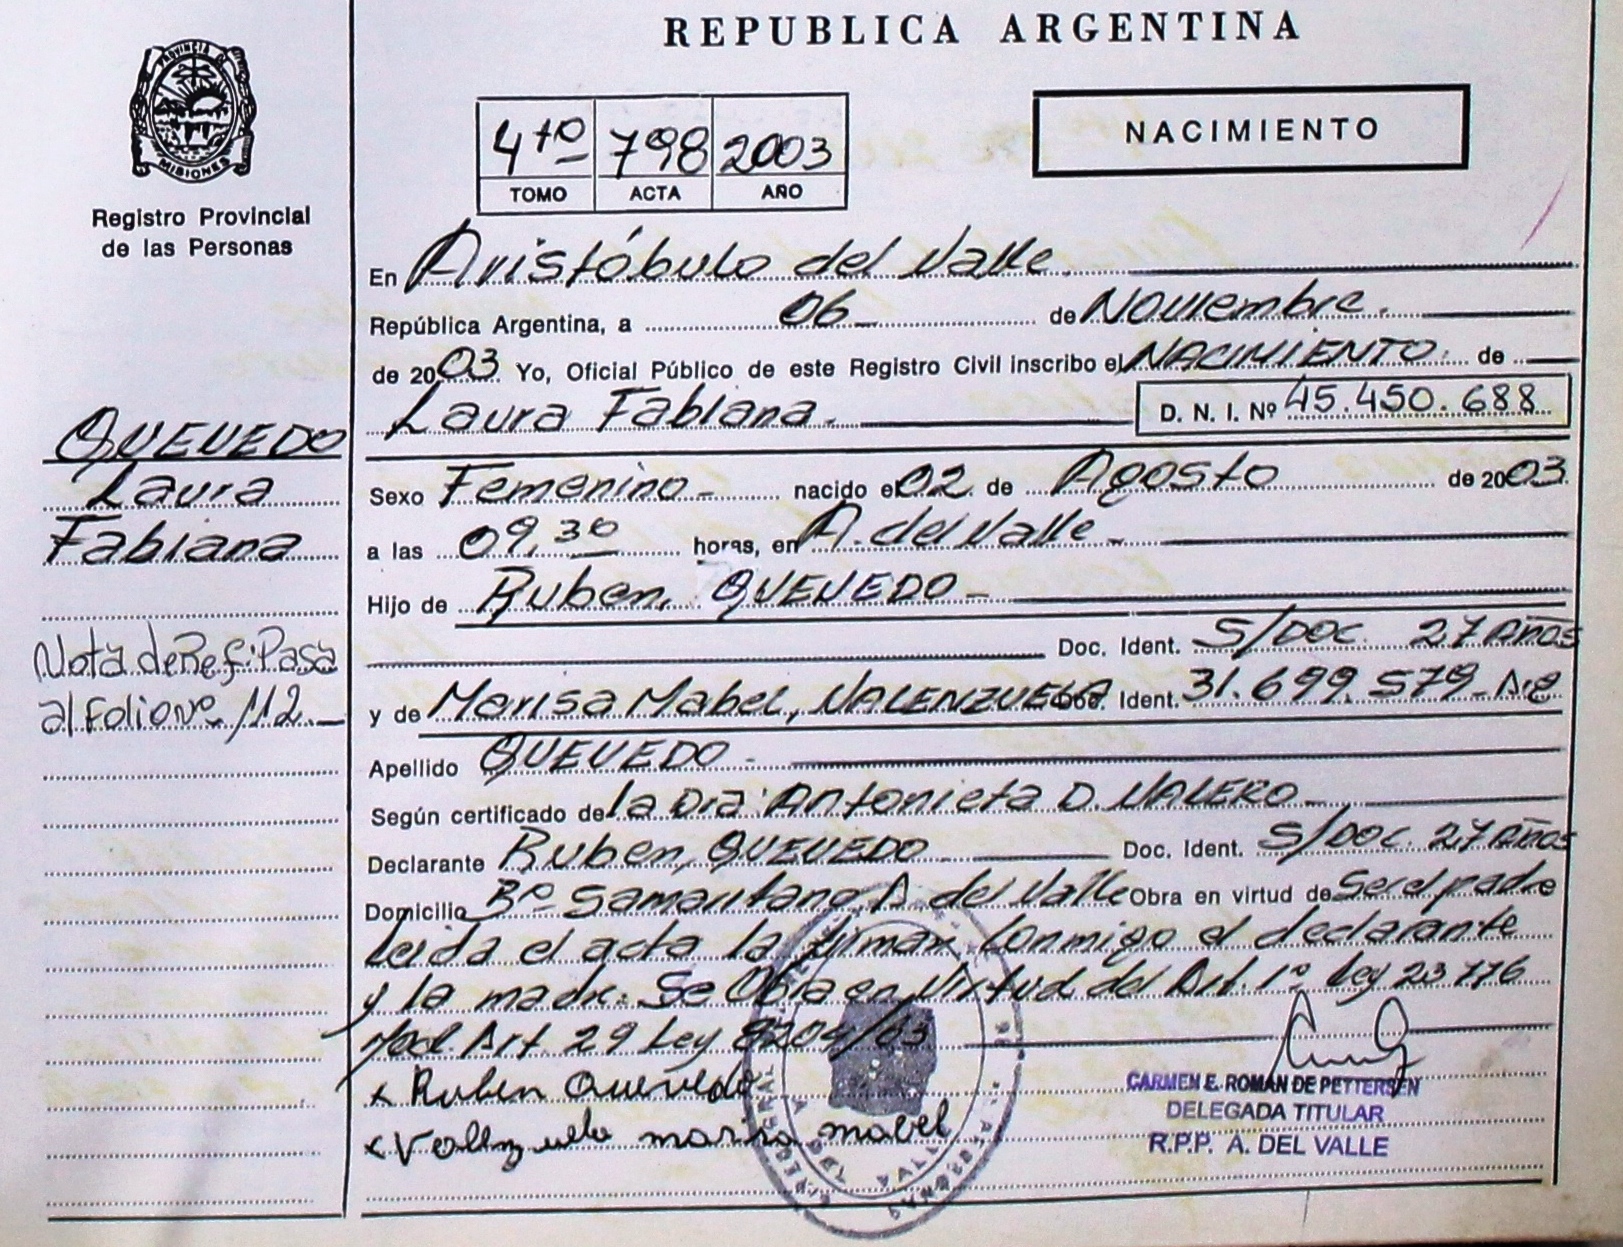 REPUBLICA ARGENTINA
PROVINCIA DE
MISIONES
Registro Provincial
de las Personas
4to 798 2003
TOMO ACTA AÑO
NACIMIENTO
En Aristóbulo del Valle
República Argentina, a 06 de Noviembre.
de 2003 Yo, Oficial Público de este Registro Civil inscribo el NACIMIENTO de
Laura Fabiana. D. N. I. Nº 45.450.688
QUEVEDO
Laura
Fabiana
Sexo Femenino - nacido el 02 de Agosto de 2003
a las 09,30 horas, en A. del Valle -
Hijo de Ruben, QUEVEDO -
Doc. Ident. S/DOC. 27 Años
Nota de Ref: Pasa
al Folio Nº 112. -
y de Marisa Mabel, VALENZUELA Doc. Ident. 31.699.579 -
Apellido QUEVEDO -
Según certificado de la Dra. Antonieta D. VALERO -
Declarante Ruben, QUEVEDO Doc. Ident. S/DOC. 27 Años
Domicilio Bº Samaritano A. del Valle Obra en virtud de Ser el padre
Leida el acta la firman conmigo el declarante
y la madre. Se Obra en Virtud del Art. 1º Ley 23776
Mod. Art. 29 Ley 8204/63
x Ruben Quevedo
x Valenzuela marisa mabel
CARMEN E. ROMAN DE PETTERSEN
DELEGADA TITULAR
R.P.P. A. DEL VALLE